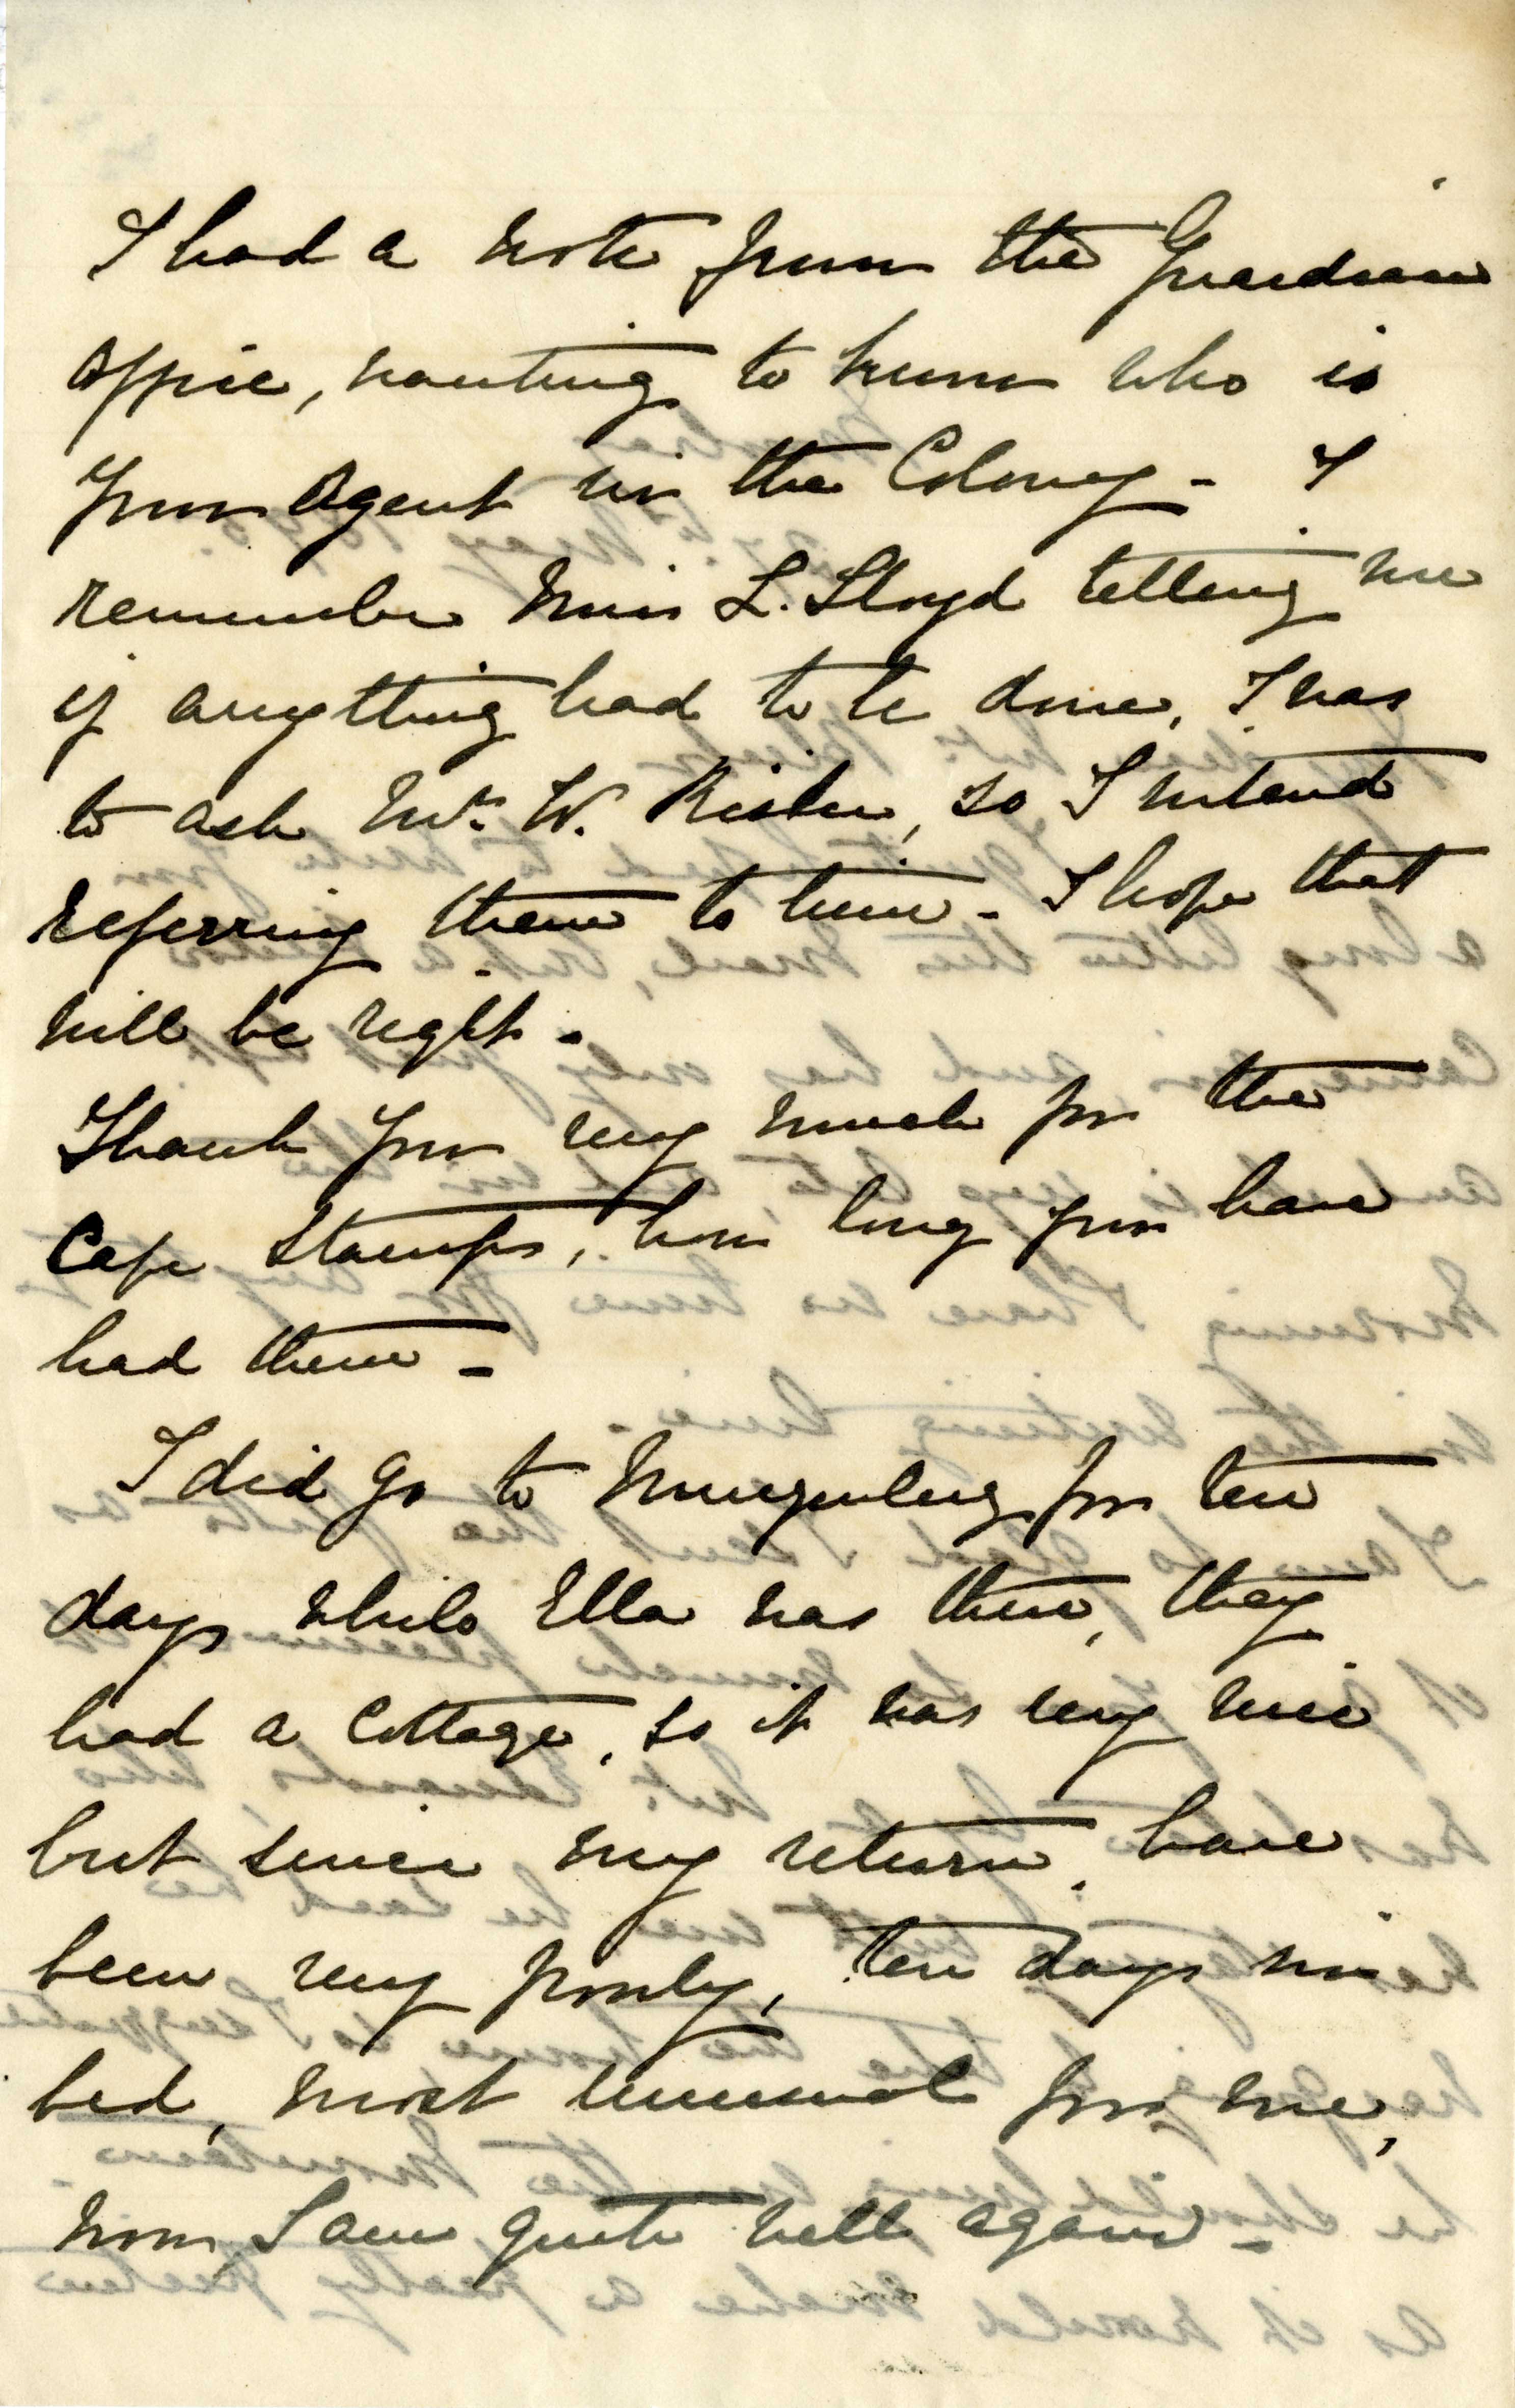 I had a note from the Guardian
Office, wanting to know who is
your Agent in the Colony - I
remember Miss L. Lloyd telling me
if anything had to be done, I was
to ask Mr. W. so I intend
referring them to him - I hope that
will be right -
Thank you very much for the
Cape Stamps, how long you have
had them -
I did go to Muizenberg for ten
days while Ella was there, they
had a Cottage, so it was very nice
but since my return, have
been very poorly, ten days in
bed, most unusual for me,
now, I am quite well again -